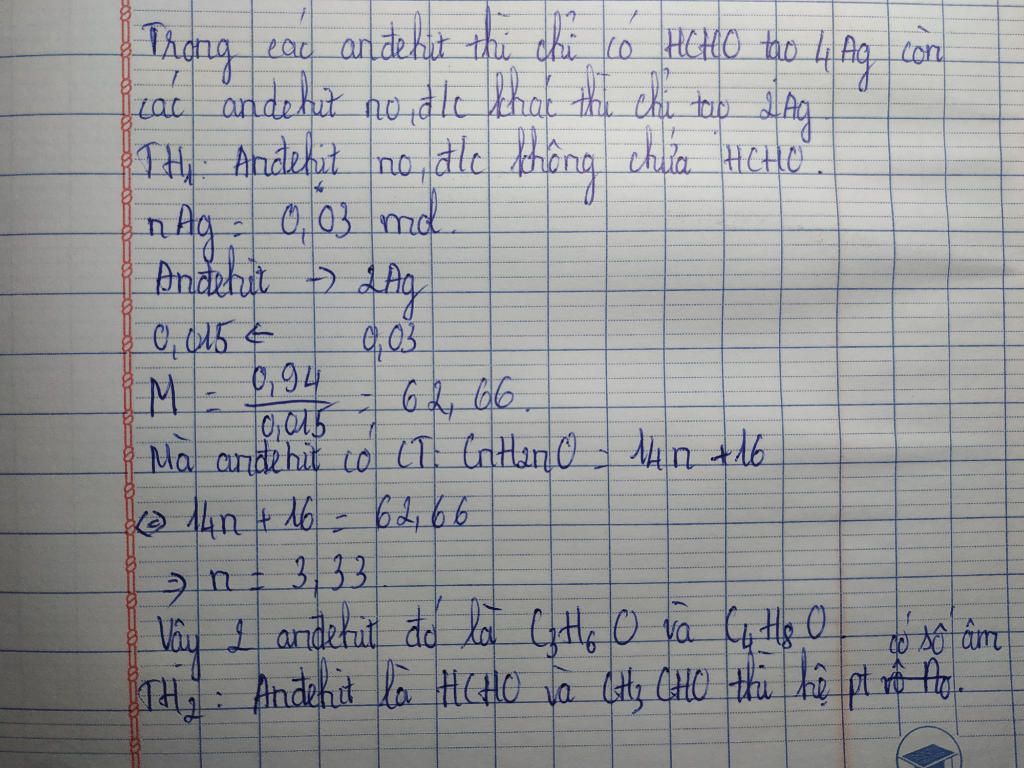 Trong các anđehit thì chỉ có HCHO tạo 4Ag còn
các anđehit no, đ/c khác thì chỉ tạo 2Ag
TH1: Anđehit no, đ/c không chứa HCHO.
nAg = 0,03 mol.
Anđehit → 2Ag
0,015 ← 0,03
M = 0,94 / 0,015 = 62,66.
Mà anđehit có CT: CnH2nO = 14n + 16
⇔ 14n + 16 = 62,66
⇒ n = 3,33
Vậy 2 anđehit đó là C3H6O và C4H8O.
có số âm
TH2: Anđehit là HCHO và CH3CHO thì hệ pt vô no.